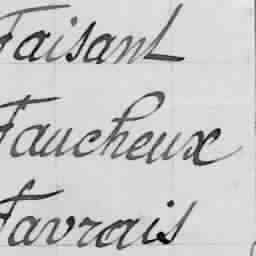 Faisant
Faucheux
Favrais